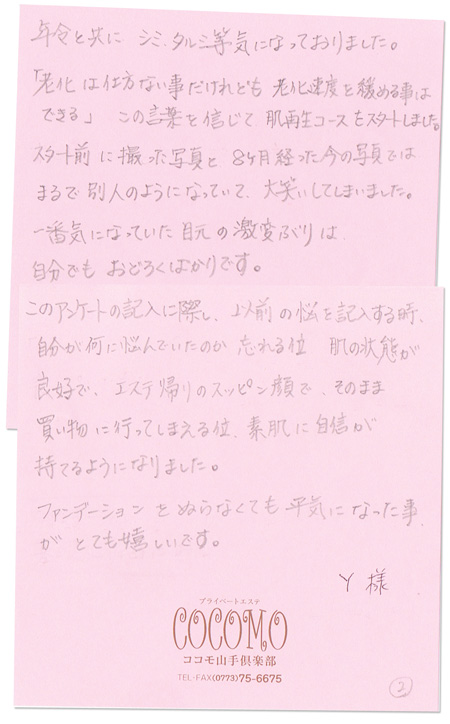 年令と共に シミ、タルミ等気になっておりました。
「老化は仕方ない事だけれども 老化速度を緩める事は
できる」 この言葉を信じて 肌再生コースをスタートしました。
スタート前に撮った写真と 8ヶ月経った今の写真では
まるで別人のようになっていて、大笑いしてしまいました。
一番気になっていた目元の激変ぶりは、
自分でもおどろくばかりです。
このアンケートの記入に際し、以前の悩を記入する時、
自分が何に悩んでいたのか 忘れる位 肌の状態が
良好で、エステ帰りのスッピン顔で、そのまま
買い物に行ってしまえる位、素肌に自信が
持てるようになりました。
ファンデーションをぬらなくても平気になった事
が とても嬉しいです。
Y 様
プライベートエステ
COCOMO
ココモ山手倶楽部
TEL・FAX(0773)75-6675
2